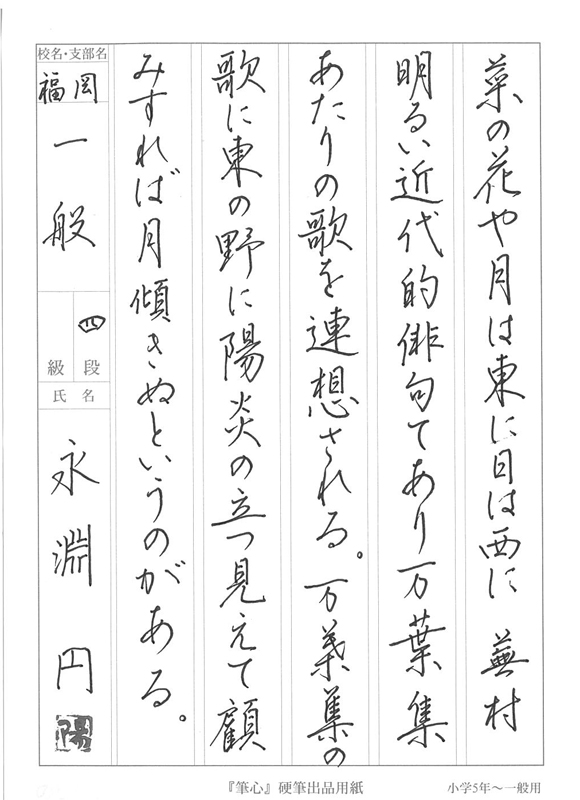 菜の花や月は東に日は西に 蕪村
明るい近代的俳句てあり万葉集
あたりの歌を連想される。万葉集の
歌に東の野に陽炎の立つ見えて顧
みすれば月傾きぬというのがある。
校名・支部名
福岡
一般
四
級 段
氏 名
永淵 円
陽
『筆心』硬筆出品用紙
小学5年〜一般用